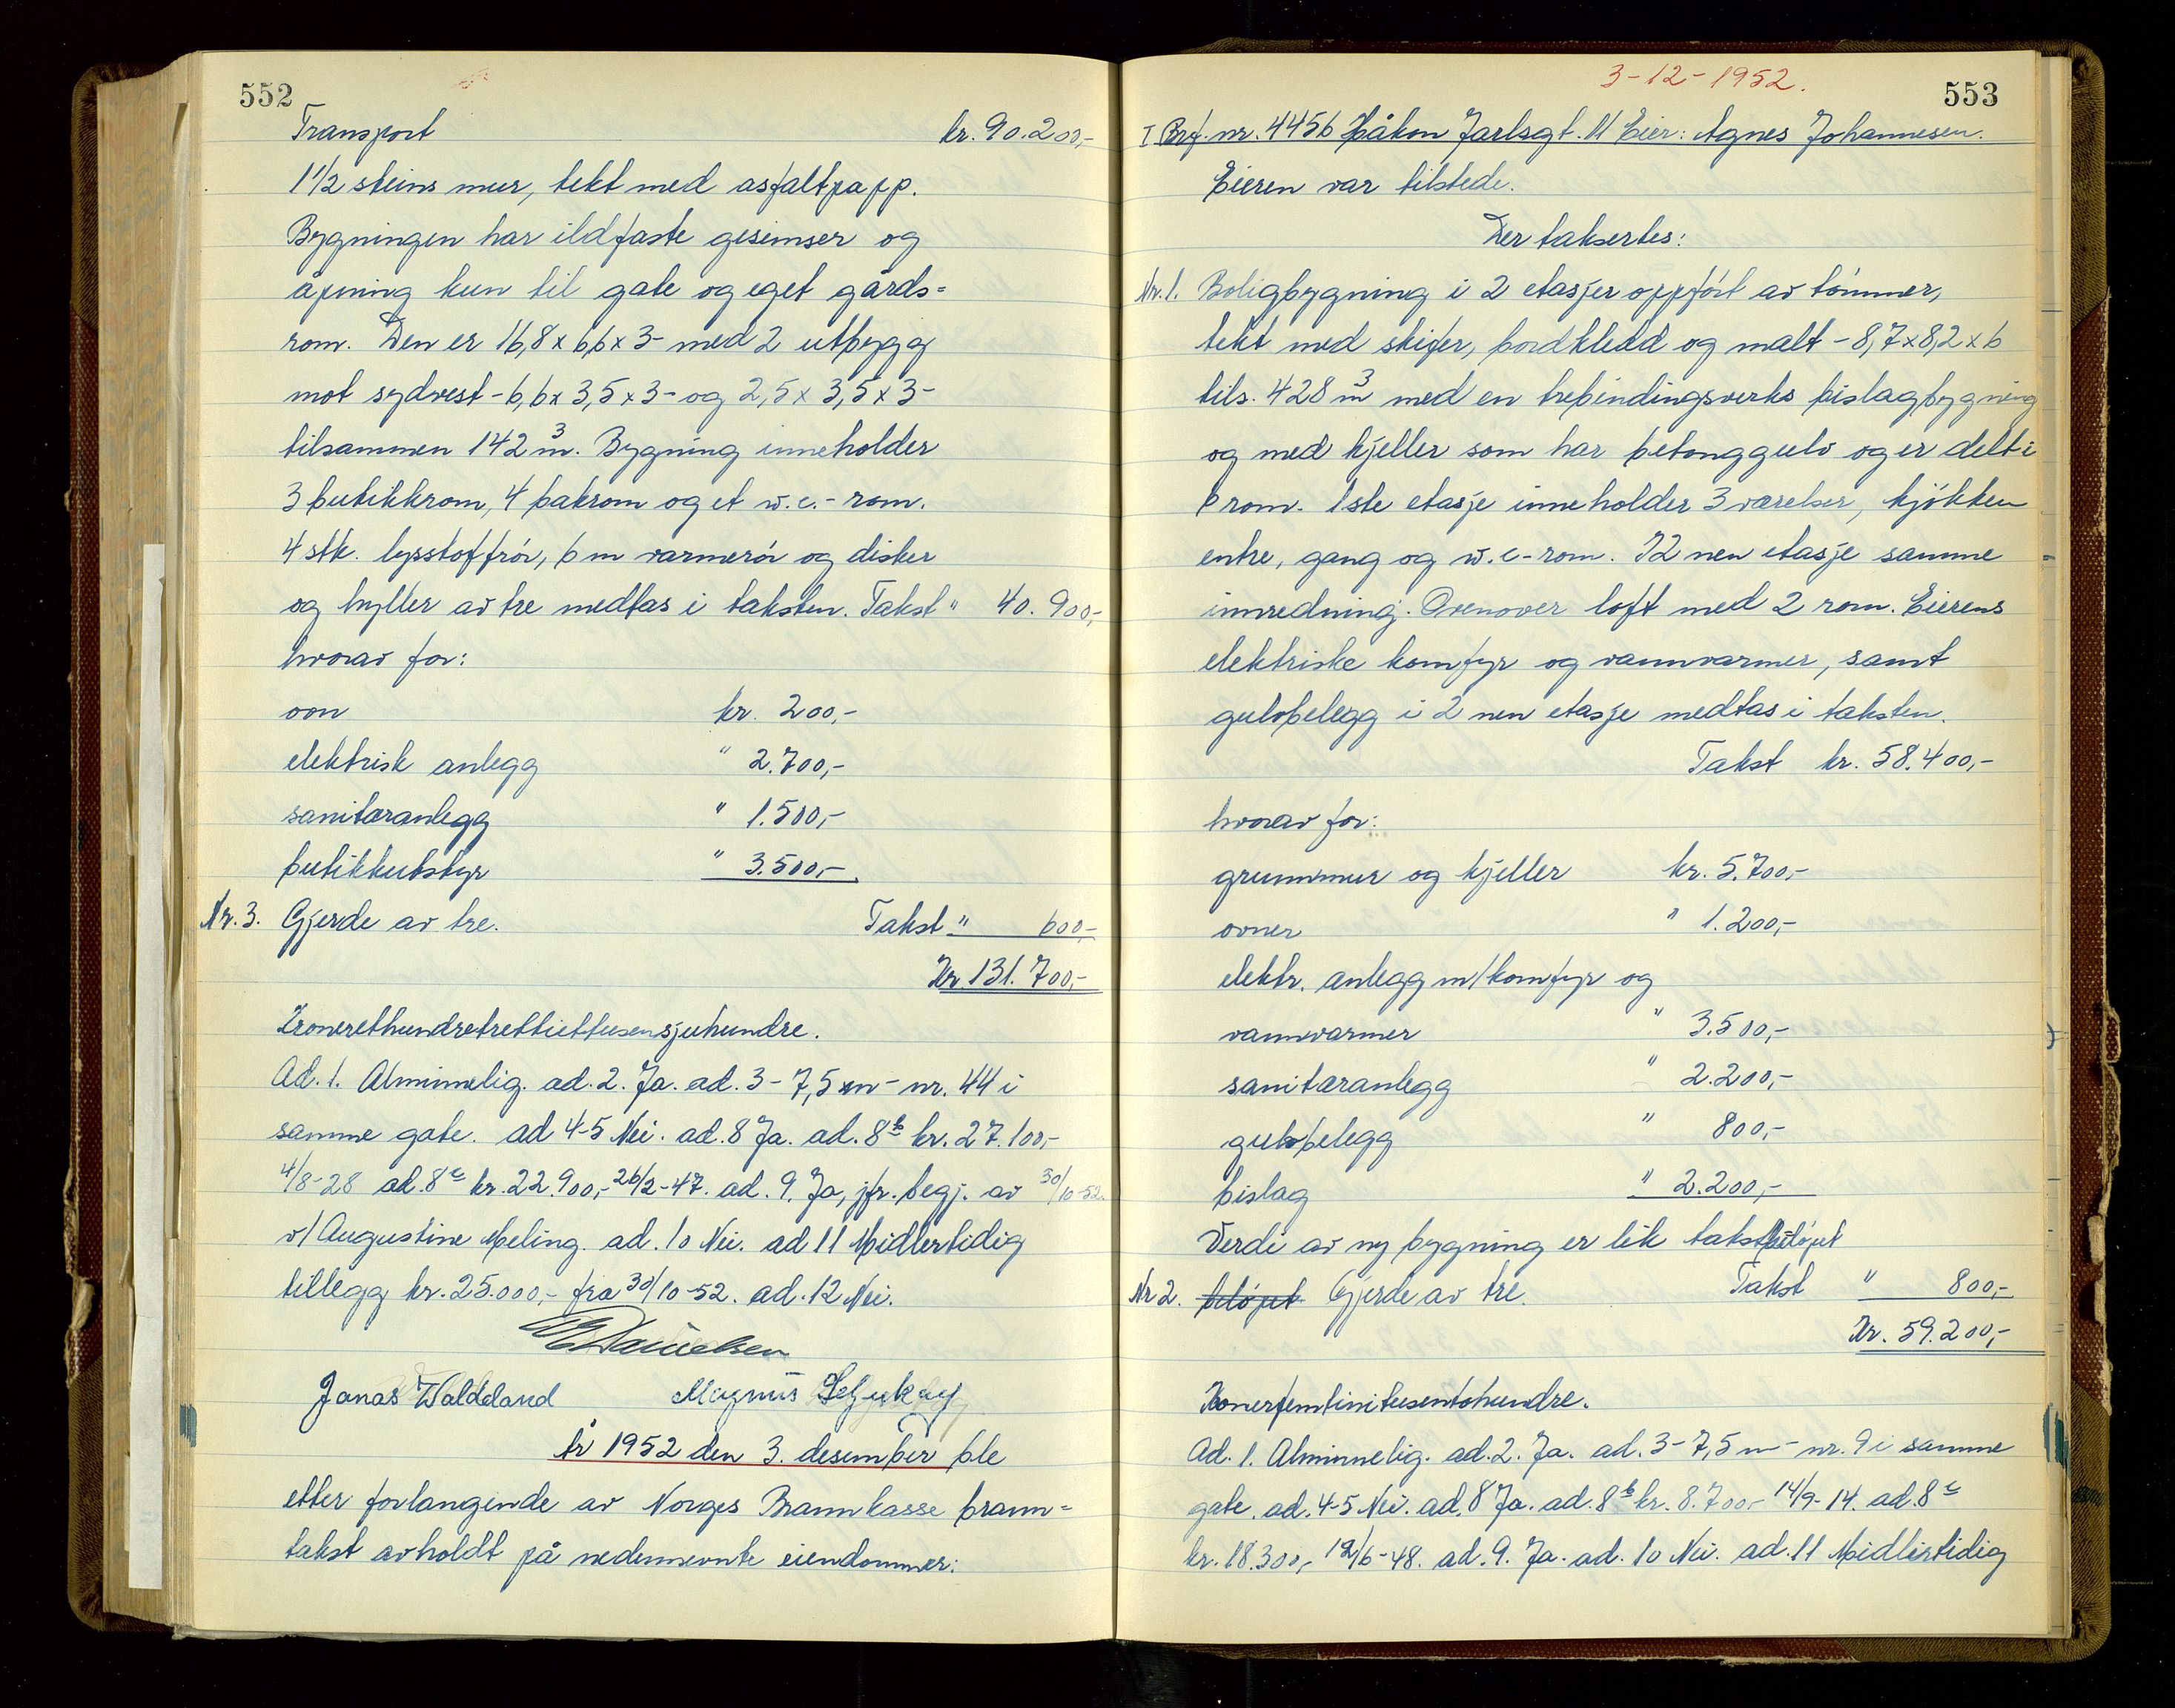 552
Transport kr. 90.200,-
1 1/2 steins mur, tekt med asfaltpapp.
Bygningen har ildfaste gesimser og
åpning kun til gate og eget gårds=
rom. Den er 16,8 x 6,6 x 3 - med 2 utbygg
mot sydvest - 6,6 x 3,5 x 3 - og 2,5 x 3,5 x 3 -
tilsammen 142 m³. Bygning inneholder
3 butikkrom, 4 bakrom og et w.c.- rom.
4 stk. lysstoffrør, 6 m varmerør og disker
og hyller av tre medtas i taksten. Takst " 40.900,-
hvorav for:
ovn kr. 200,-
elektrisk anlegg " 2.700,-
sanitæranlegg " 1.500,-
butikkutstyr " 3.500,-
Nr. 3. Gjerde av tre. Takst " 600,-
Kr. 131.700,-
Kroneretthundretrettiettusensjuhundre.
Ad. 1. Alminnelig. ad. 2. Ja. ad. 3 - 7,5 m - nr. 44 i
samme gate. ad 4-5 Nei. ad. 8 Ja. ad. 8 b kr. 27.100,-
4/8-28 ad. 8 c kr. 22.900,- 26/2-47. ad. 9. Ja, jfr. begj. av 30/10-52.
v/ Augustine Meling. ad. 10 Nei. ad 11 Midlertidig
tillegg kr. 25.000,- fra 30/10-52. ad. 12 Nei.
Danielsen
Jonas Waldeland Magnus
År 1952 den 3. desember ble
etter forlangende av Norges Brannkasse brann=
takst avholdt på nedennevnte eiendommer:
3-12-1952.
553
I Brf. nr. 4456 Håkon Jarlsgt. 11 Eier: Agnes Johannesen.
Eieren var tilstede.
Der taksertes:
Nr. 1. Boligbygning i 2 etasjer oppført av tømmer,
tekt med skifer, bordkledd og malt - 8,7 x 8,2 x 6
tils. 428 m³ med en trebindingsverks bislagbygning
og med kjeller som har betonggulv og er delt i
6 rom. 1ste etasje inneholder 3 værelser, kjøkken
entre, gang og w.c-rom. I 2 nen etasje samme
innredning. Ovenover loft med 2 rom. Eierens
elektriske komfyr og vannvarmer, samt
gulvbelegg i 2 nen etasje medtas i taksten.
Takst kr. 58.400,-
hvorav for:
grunnmur og kjeller kr. 5.700,-
ovner " 1.200,-
elektr. anlegg m/komfyr og
vannvarmer " 3.500,-
sanitæranlegg " 2.200,-
gulvbelegg " 800,-
bislag " 2.200,-
Verdi av ny bygning er lik takstbeløpet
Nr 2. beløpet Gjerde av tre. Takst " 800,-
Kr. 59.200,-
Kronerfemtinitusentohundre.
Ad. 1. Alminnelig. ad. 2. Ja. ad. 3 - 7,5 m - nr. 9 i samme
gate. ad. 4-5 Nei. ad. 8 Ja. ad. 8 b kr. 8.700,- 14/9-14. ad. 8 c
kr. 18.300,- 12/6-48. ad. 9. Ja. ad. 10 Nei. ad. 11 Midlertidig